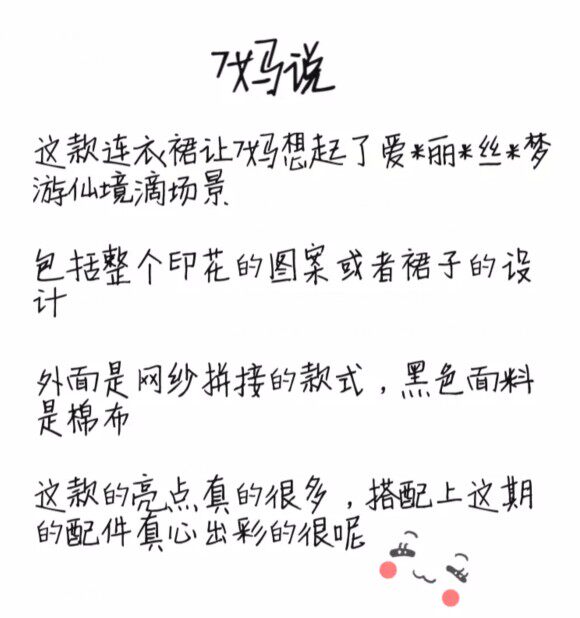 7妈说
这款连衣裙让7妈想起了爱*丽*丝*梦
游仙境滴场景
包括整个印花的图案或者裙子的设
计
外面是网纱拼接的款式，黑色面料
是棉布
这款的亮点真的很多，搭配上这期
的配件真心出彩的很呢